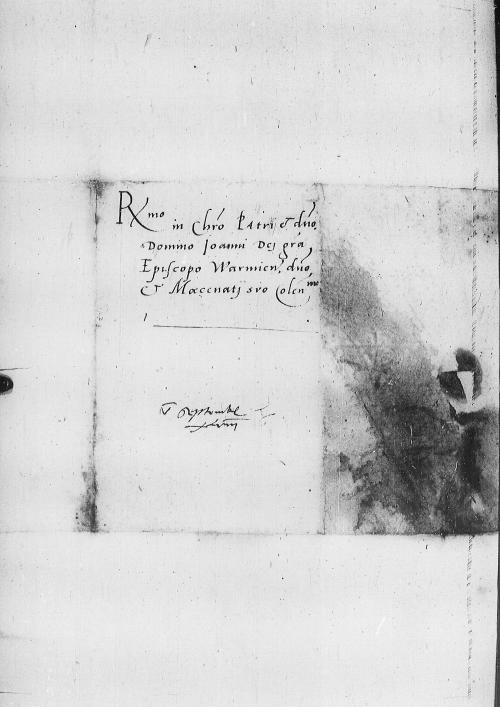 Rx^mo in Chro Patri et dno,
Domino Ioanni Dei gra
Episcopo Warmien, dno,
et Mœcenati svo Colen^mo
V Septembr